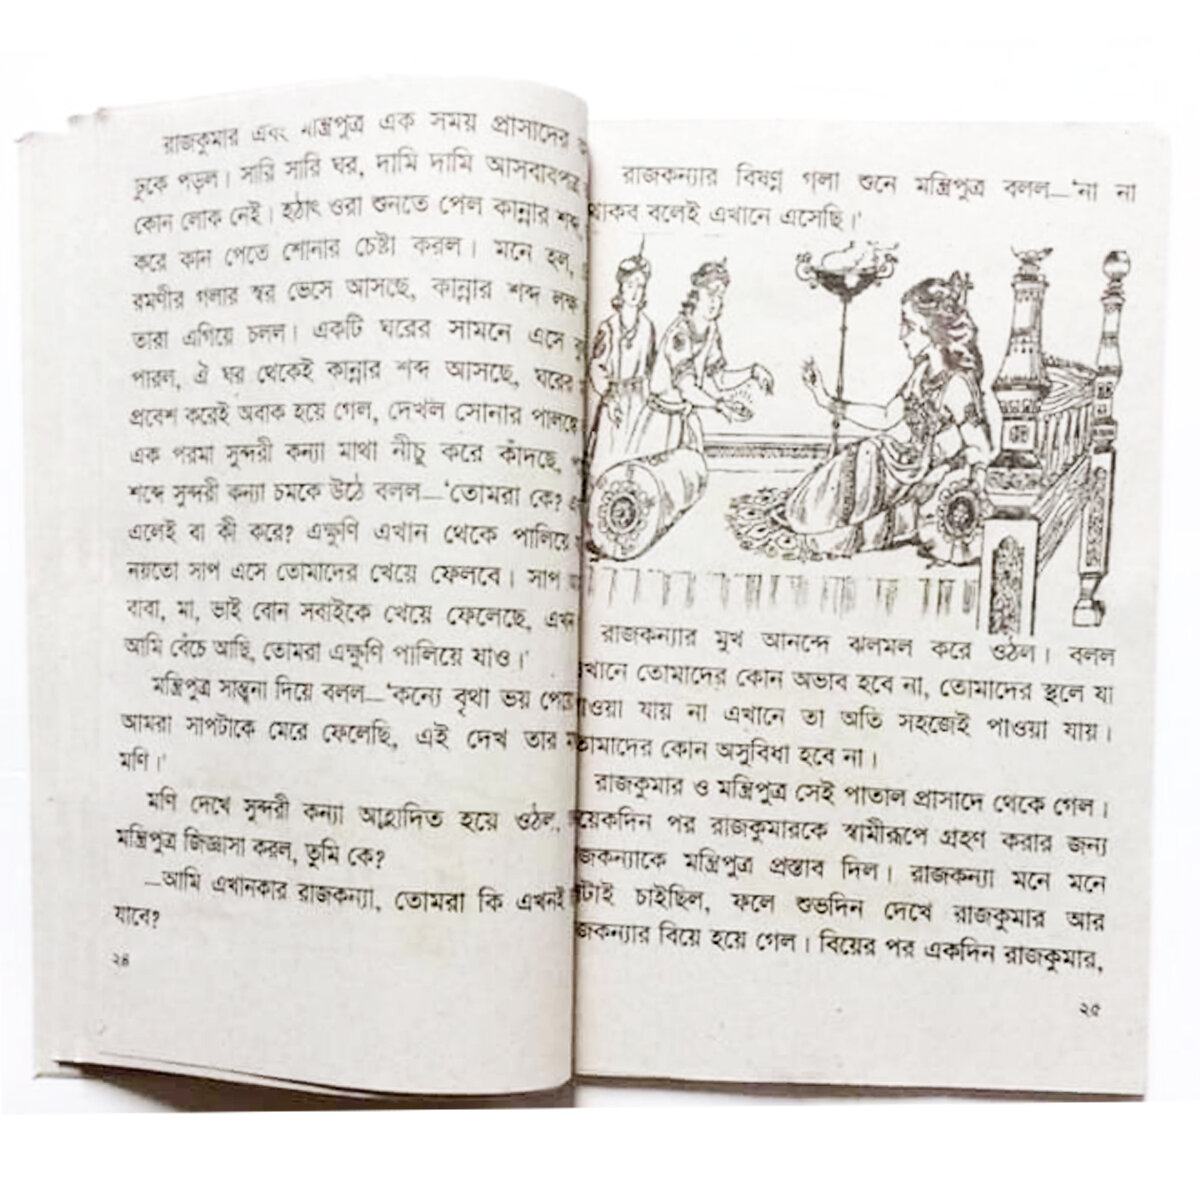 রাজকুমার এবং মন্ত্রিপুত্র এক সময় প্রাসাদের
ঢুকে পড়ল। সারি সারি ঘর, দামি দামি আসবাবপত্র
কোন লোক নেই। হঠাৎ ওরা শুনতে পেল কান্নার শব্দ,
করে কান পেতে শোনার চেষ্টা করল। মনে হল,
রমণীর গলার স্বর ভেসে আসছে, কান্নার শব্দ লক্ষ
তারা এগিয়ে চলল। একটি ঘরের সামনে এসে
পারল, ঐ ঘর থেকেই কান্নার শব্দ আসছে, ঘরের
প্রবেশ করেই অবাক হয়ে গেল, দেখল সোনার পালঙ্কে
এক পরমা সুন্দরী কন্যা মাথা নীচু করে কাঁদছে,
শব্দে সুন্দরী কন্যা চমকে উঠে বলল—'তোমরা কে?
এলেই বা কী করে? এক্ষুণি এখান থেকে পালিয়ে
নয়তো সাপ এসে তোমাদের খেয়ে ফেলবে। সাপ
বাবা, মা, ভাই বোন সবাইকে খেয়ে ফেলেছে, এখন
আমি বেঁচে আছি, তোমরা এক্ষুণি পালিয়ে যাও।'
মন্ত্রিপুত্র সান্ত্বনা দিয়ে বলল—'কন্যে বৃথা ভয়
আমরা সাপটাকে মেরে ফেলেছি, এই দেখ তার
মণি।'
মণি দেখে সুন্দরী কন্যা আহ্লাদিত হয়ে ওঠল,
মন্ত্রিপুত্র জিজ্ঞাসা করল, তুমি কে?
—আমি এখানকার রাজকন্যা, তোমরা কি এখনই
যাবে?
২৪
রাজকন্যার বিষণ্ণ গলা শুনে মন্ত্রিপুত্র বলল—'না না
থাকব বলেই এখানে এসেছি।'
রাজকন্যার মুখ আনন্দে ঝলমল করে ওঠল। বলল
এখানে তোমাদের কোন অভাব হবে না, তোমাদের স্থলে যা
পাওয়া যায় না এখানে তা অতি সহজেই পাওয়া যায়।
তোমাদের কোন অসুবিধা হবে না।
রাজকুমার ও মন্ত্রিপুত্র সেই পাতাল প্রাসাদে থেকে গেল।
কয়েকদিন পর রাজকুমারকে স্বামীরূপে গ্রহণ করার জন্য
রাজকন্যাকে মন্ত্রিপুত্র প্রস্তাব দিল। রাজকন্যা মনে মনে
চাইছিল, ফলে শুভদিন দেখে রাজকুমার আর
রাজকন্যার বিয়ে হয়ে গেল। বিয়ের পর একদিন রাজকুমার,
২৫